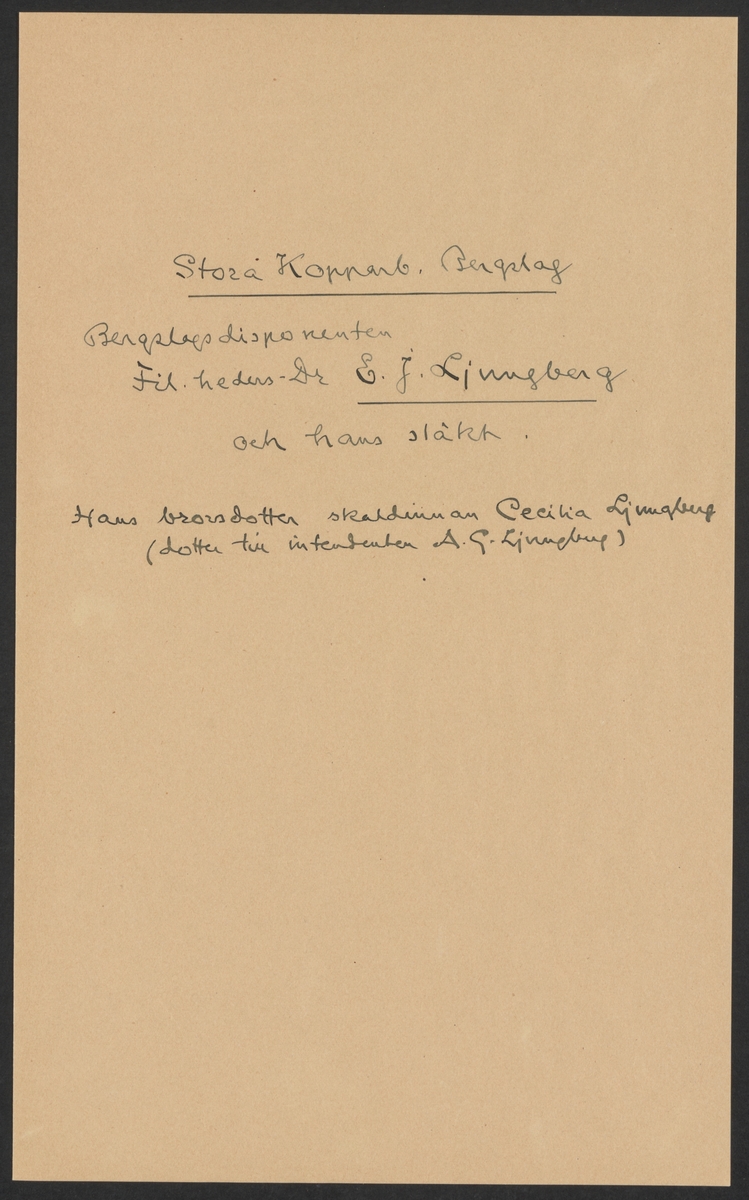 Stora Kopparb. Bergslag
Bergslagsdisponenten
Fil. heders-Dr E. J. Ljungberg
och hans släkt.
Hans brorsdotter skaldinnan Cecilia Ljungberg
(dotter till intendenten A. G. Ljungberg)